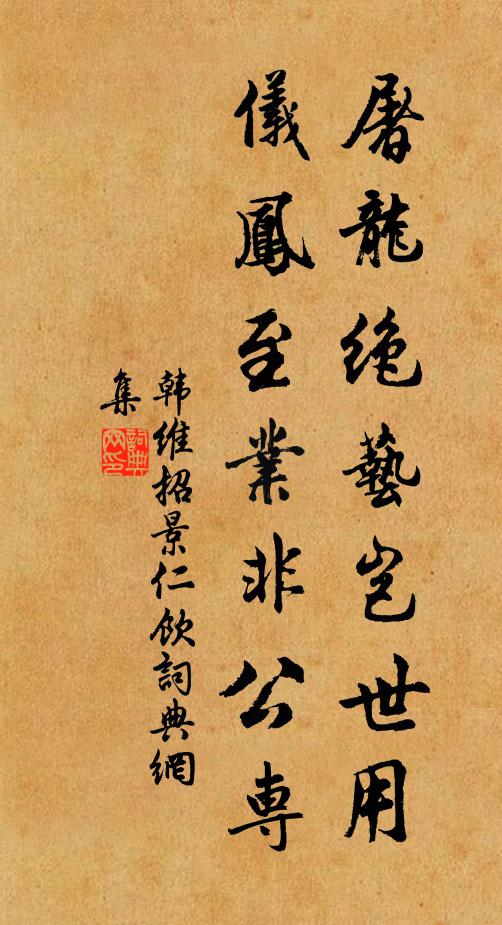 屠龍絶藝豈世用
儀鳳至業非公專
韩維招景仁飲詞典網
集
詞典網印